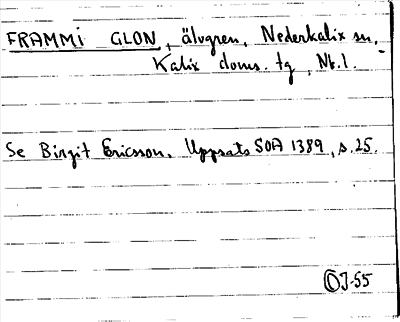 FRAMMI GLON, älvgren, Nederkalix sn,
Kalix doms. tg, Nb.l.
Se Birgit Ericsson, Uppsats SOA 1389, s. 25.
OJ-55